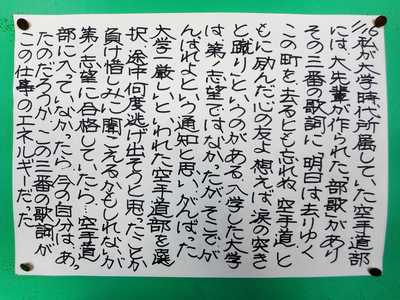 11/16私が大学時代所属していた空手道部
には、大先輩が作られた「部歌」があり
その三番の歌詞に「明日は去りゆく
この町を去るとも忘れぬ空手道」と
もに励んだ心の友よ想えば涙の突き
と蹴り」というのがある。入学した大学
は第一志望ではなかったが「そこでが
んばれよという通知と思い、がんばった
大学一厳しいといわれた空手道部を選
択、途中何度逃げ出そうと思ったことか
負け惜しみに聞こえるかもしれないが
第一志望に合格していたら、空手道
部に入っていなかったら今の自分はあっ
たのだろうか、この三番の歌詞が
この仕事のエネルギーだった